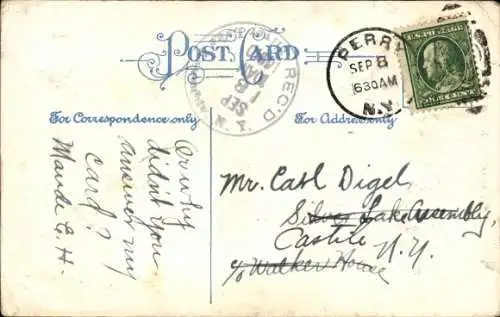 POST CARD
For Correspondence only
For Address only
REC'D
SEP
8
N.Y.
PERRY
SEP 8
630AM
N.Y.
ONE CENT
Or why
didn't you
answer my
card?
Maude E. H.
Mr. Carl Digel
Silver Lake Assembly,
Castile N.Y.
c/o Walker House